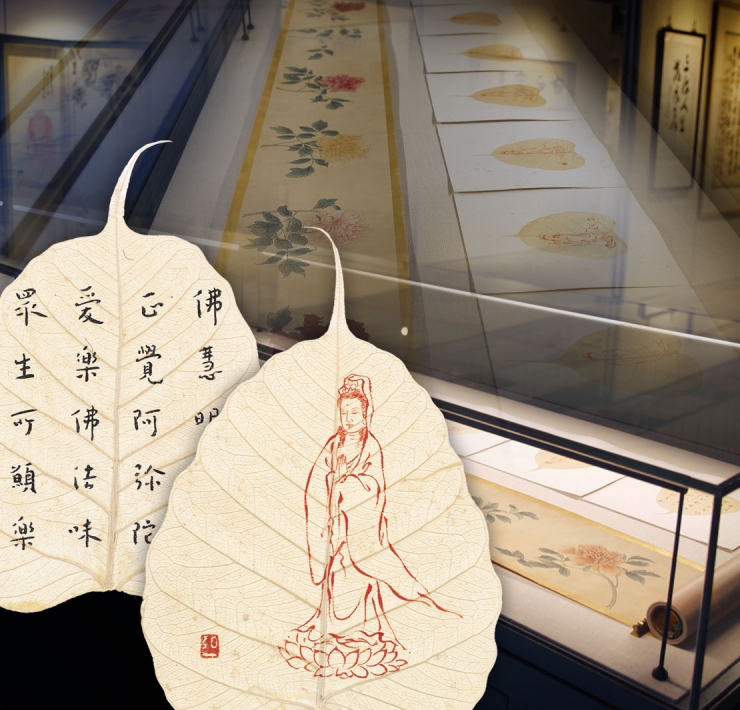 佛慧明
正覺阿弥陀
愛樂佛法味
眾生所願樂